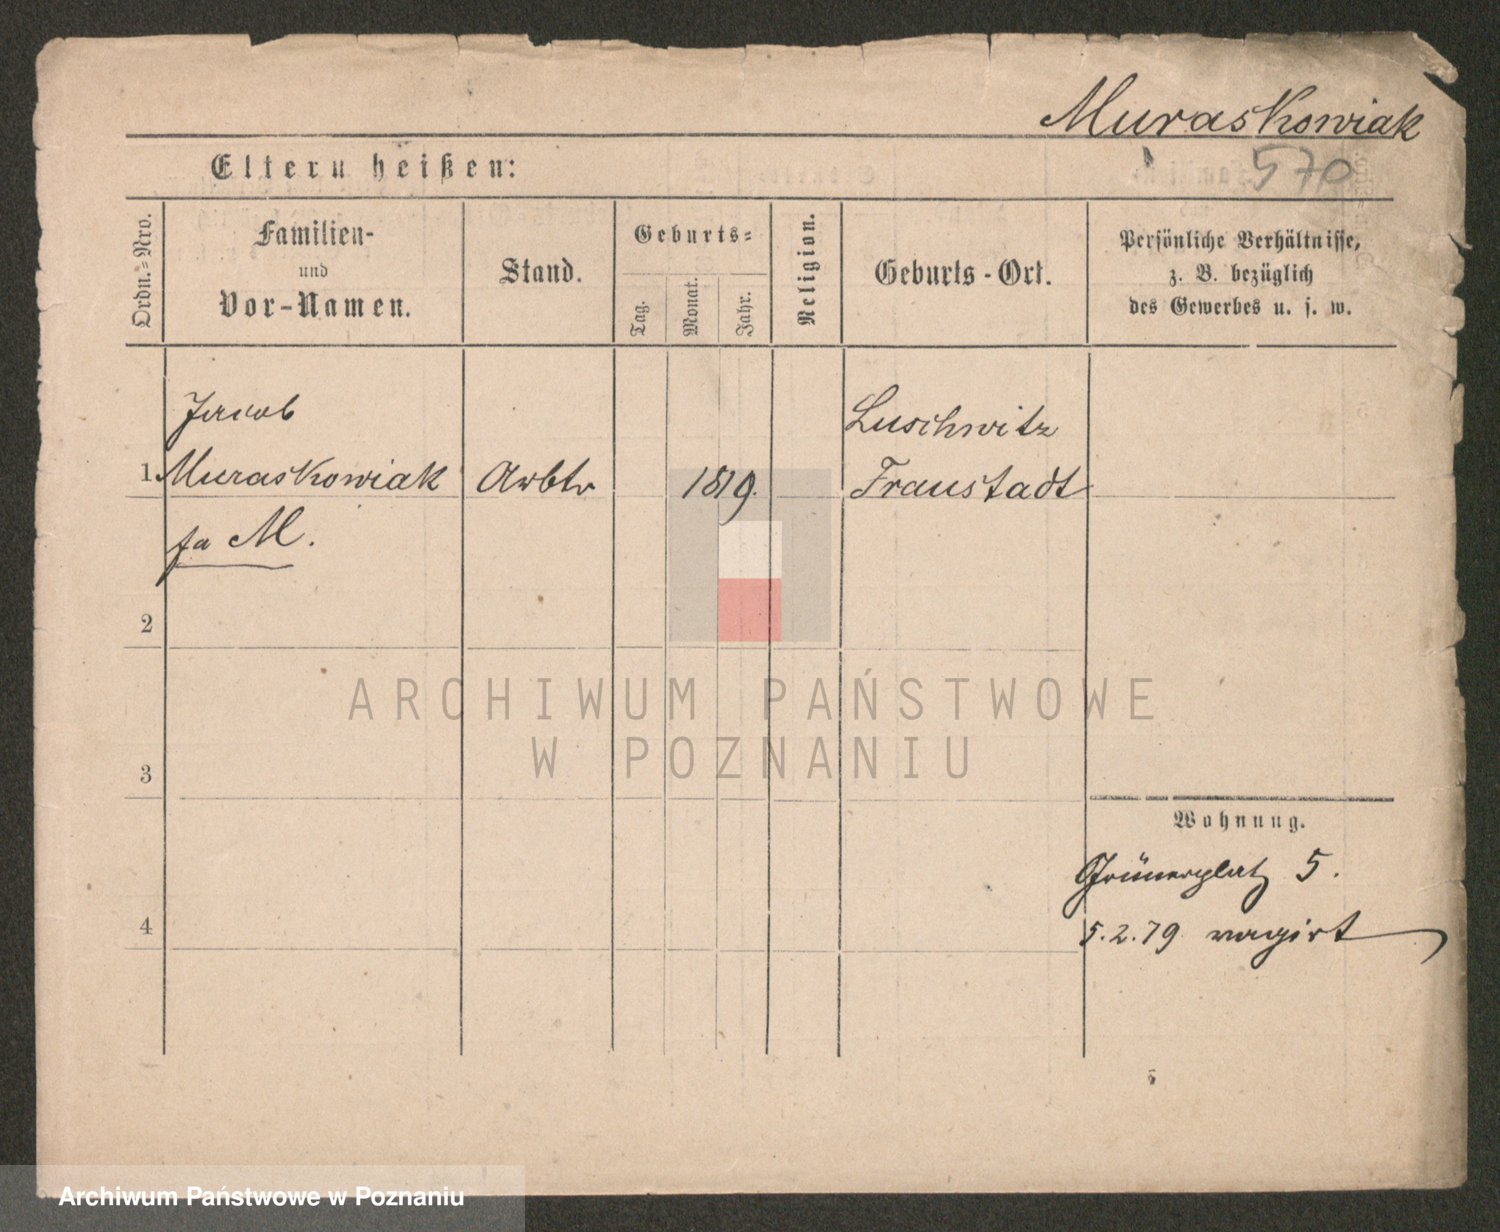 Muraskowiak
570
Eltern heißen:
Ordn.-Nro.
Familien-
und
Vor-Namen.
Stand.
Geburts-
Tag.
Monat.
Jahr.
Religion.
Geburts-Ort.
Persönliche Verhältnisse,
z. B. bezüglich
des Gewerbes u. s. w.
Jacob
Luschwitz
1. Muraskowiak Arbtr 1819. Fraustadt
fa M.
2
3
4
Wohnung.
Grünerplatz 5.
5.2.79 vagirt
ARCHIWUM PAŃSTWOWE
W POZNANIU
Archiwum Państwowe w Poznaniu